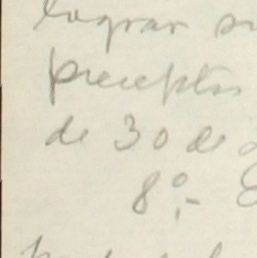 lograr su
preceptos
de 30 de
8º.- E